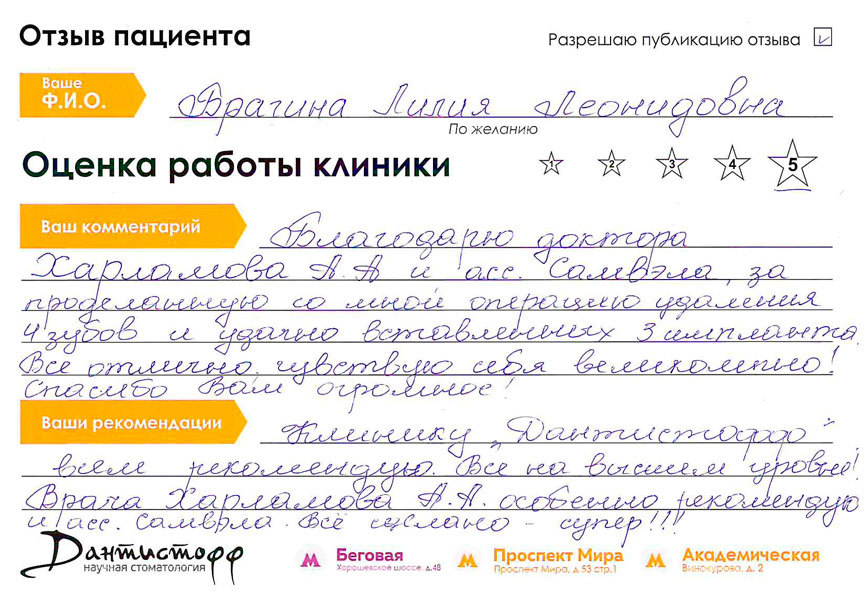 Отзыв пациента
Разрешаю публикацию отзыва
Ваше
Ф.И.О.
Врагина Лилия Леонидовна
По желанию
Оценка работы клиники
1 2 3 4 5
Ваш комментарий
Благодарю доктора
Харламова А.А и асс. Самвэла, за
проделанную со мной операцию удаления
4 зубов и удачно вставленных 3 импланта.
Все отлично, чувствую себя великолепно!
Спасибо Вам огромное!
Ваши рекомендации
Клинику „Дантистофф"
всем рекомендую. Все на высшем уровне!
Врача Харламова А.А. особенно рекомендую
и асс. Самвэла. Всё сделано - супер!!!
Дантистофф
научная стоматология
Беговая
Хорошевское шоссе, д.48
Проспект Мира
Проспект Мира, д.53 стр.1
Академическая
Винокурова, д. 2